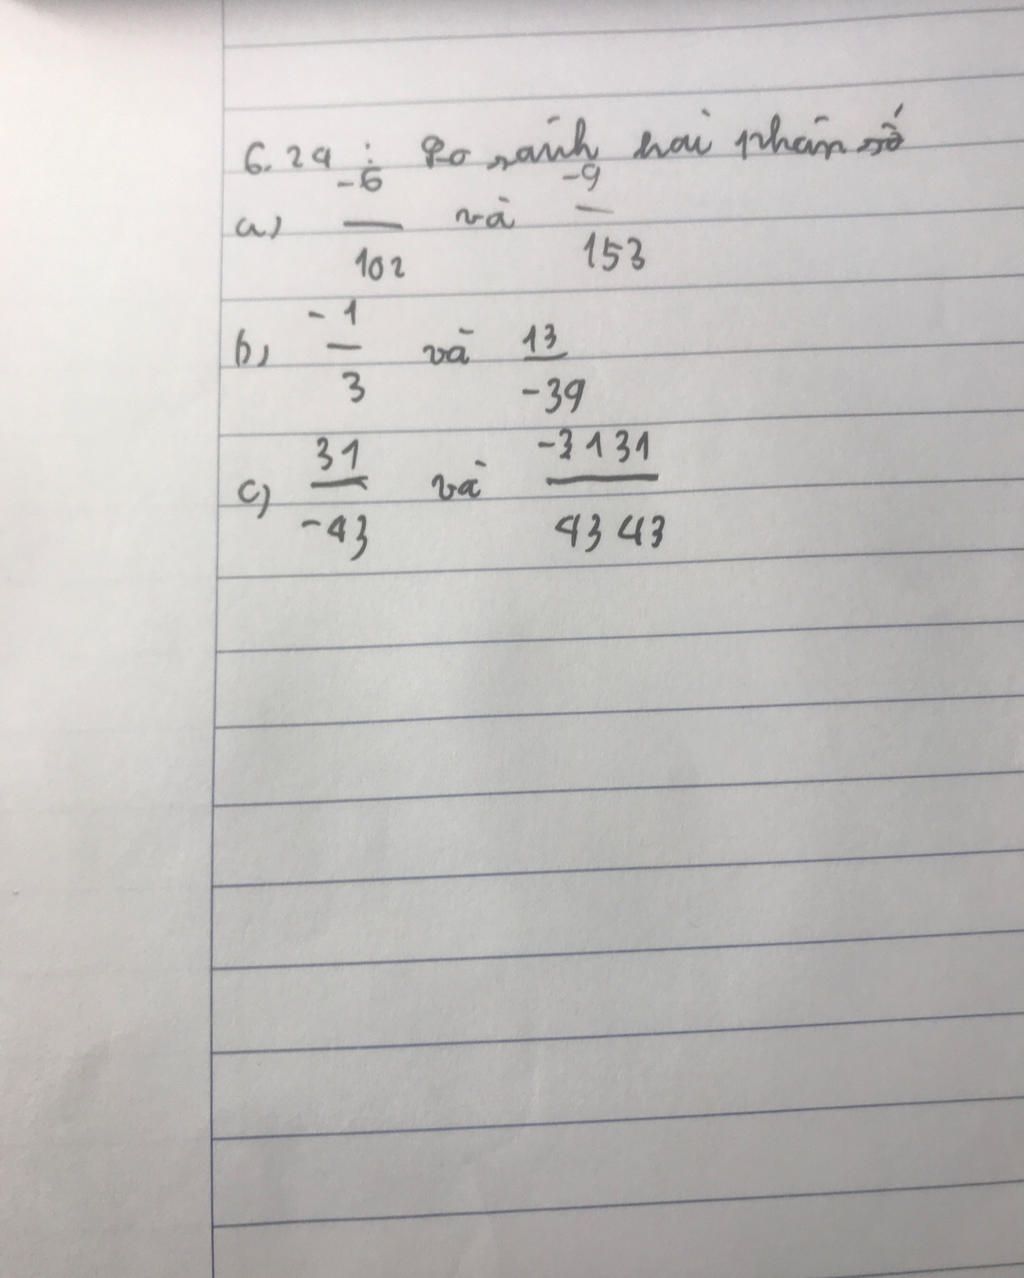 6.24 : So sánh hai phân số
a) -6/102 và -9/153
b, -1/3 và 13/-39
c) 31/-43 và -3131/4343